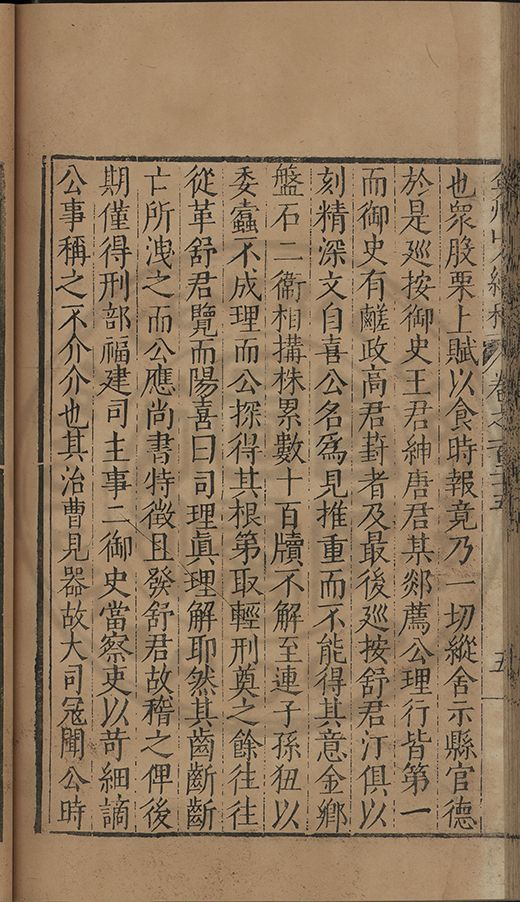 弇州山人續稿 卷之一百三十五 五
也衆股栗上賦以食時報竟乃一切縱舍示縣官德
於是廵按御史王君紳唐君某郯薦公理行皆第一
而御史有鹺政高君對者及最後廵按舒君汀俱以
刻精深文自喜公名爲見推重而不能得其意金鄉
盤石二衞相搆株累數十百牘不解至連子孫狃以
委蠧不成理而公探得其根第取輕刑奠之餘往往
從革舒君覽而陽喜曰司理眞理解耶然其齒齗齗
亡所洩之而公應尚書特徵且發舒君故稽之俾後
期僅得刑部福建司主事二御史當察吏以苛細謫
公事稱之不介介也其治曹見器故大司冦聞公時